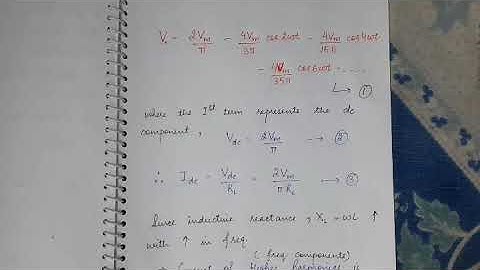 V. = 2Vm/π - 4Vm/3π cos 2ωt - 4Vm/15π cos 4ωt
- 4Vm/35π cos 6ωt - .....
↳ ①
where the Ist term represents the dc
component,
Vdc = 2Vm/π → ②
∴ Idc = Vdc/RL = 2Vm/πRL → ③
Since inductive reactance, XL = ωL ↑
with ↑ in freq.
(freq components)
of Higher harmonics is